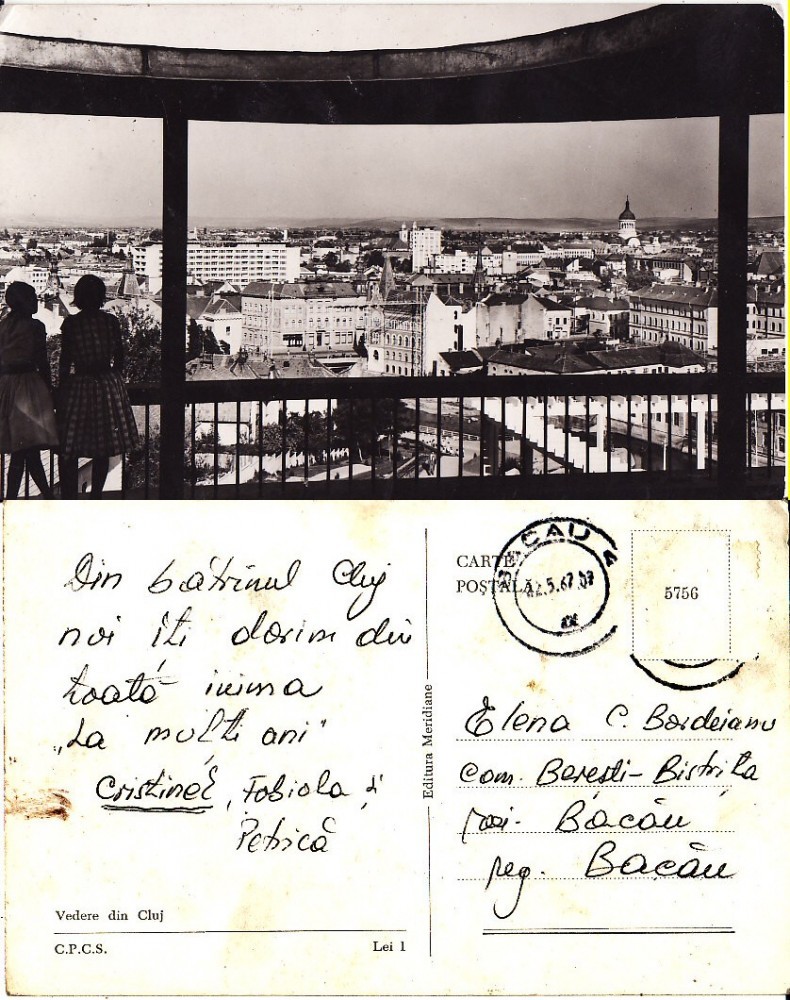 Din bătrinul Cluj
noi îți dorim din
toată inima
„La mulți ani"
Cristinel, Fabiola și
Petrică
Vedere din Cluj
C.P.C.S.
Lei 1
Editura Meridiane
CARTE
POȘTALĂ
BACAU 4
5.67
5756
Elena C. Bordeianu
com. Berești-Bistrița
rai. Bacău
reg. Bacău